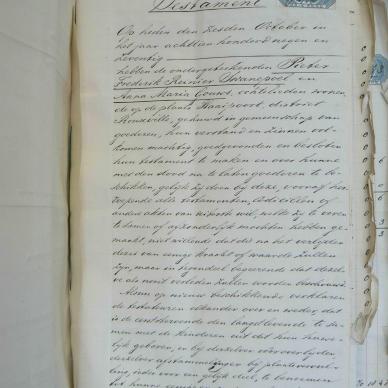 Testament
Op heden den zesden October in
het jaar achttien honderd negen en
zeventig
hebben de ondergeteekenden Pieter
Frederik Reinier Swanepoel en
Anna Maria Gouws, echtelieden wonen
de op de plaats Kaaijpoort, district
Rouxville, gehuwd in gemeenschap van
goederen, hun verstand en zinnen vol
komen machtig, goedgevonden en besloten
hun testament te maken en over hunne
met den dood na te laten goederen te be
schikken, gelijk zij doen bij deze, vooraf her
roepende alle testamenten, codicillen of
andere akten van uiterste wil, welke zij te voren
te samen of afzonderlijk mochten hebben ge
maakt, niet willende dat die na het verlijden
dezes van eenige kracht of waarde zullen
zijn, maar in tegendeel begeerende dat dezel
ve als nooit verleden zullen worden beschouwd.
Alsnu op nieuw beschikkende verklaren
de testateuren elkander over en weder, dat
is de eerststervende den langstlevende te za
men met de kinderen uit dit hun huwe
lijk geboren, en bij derzelver vooroverlijden
derzelver afstammelingen bij plaatsvervul
ling, ieder voor een gelijk deel, te benoemen
tot hunne